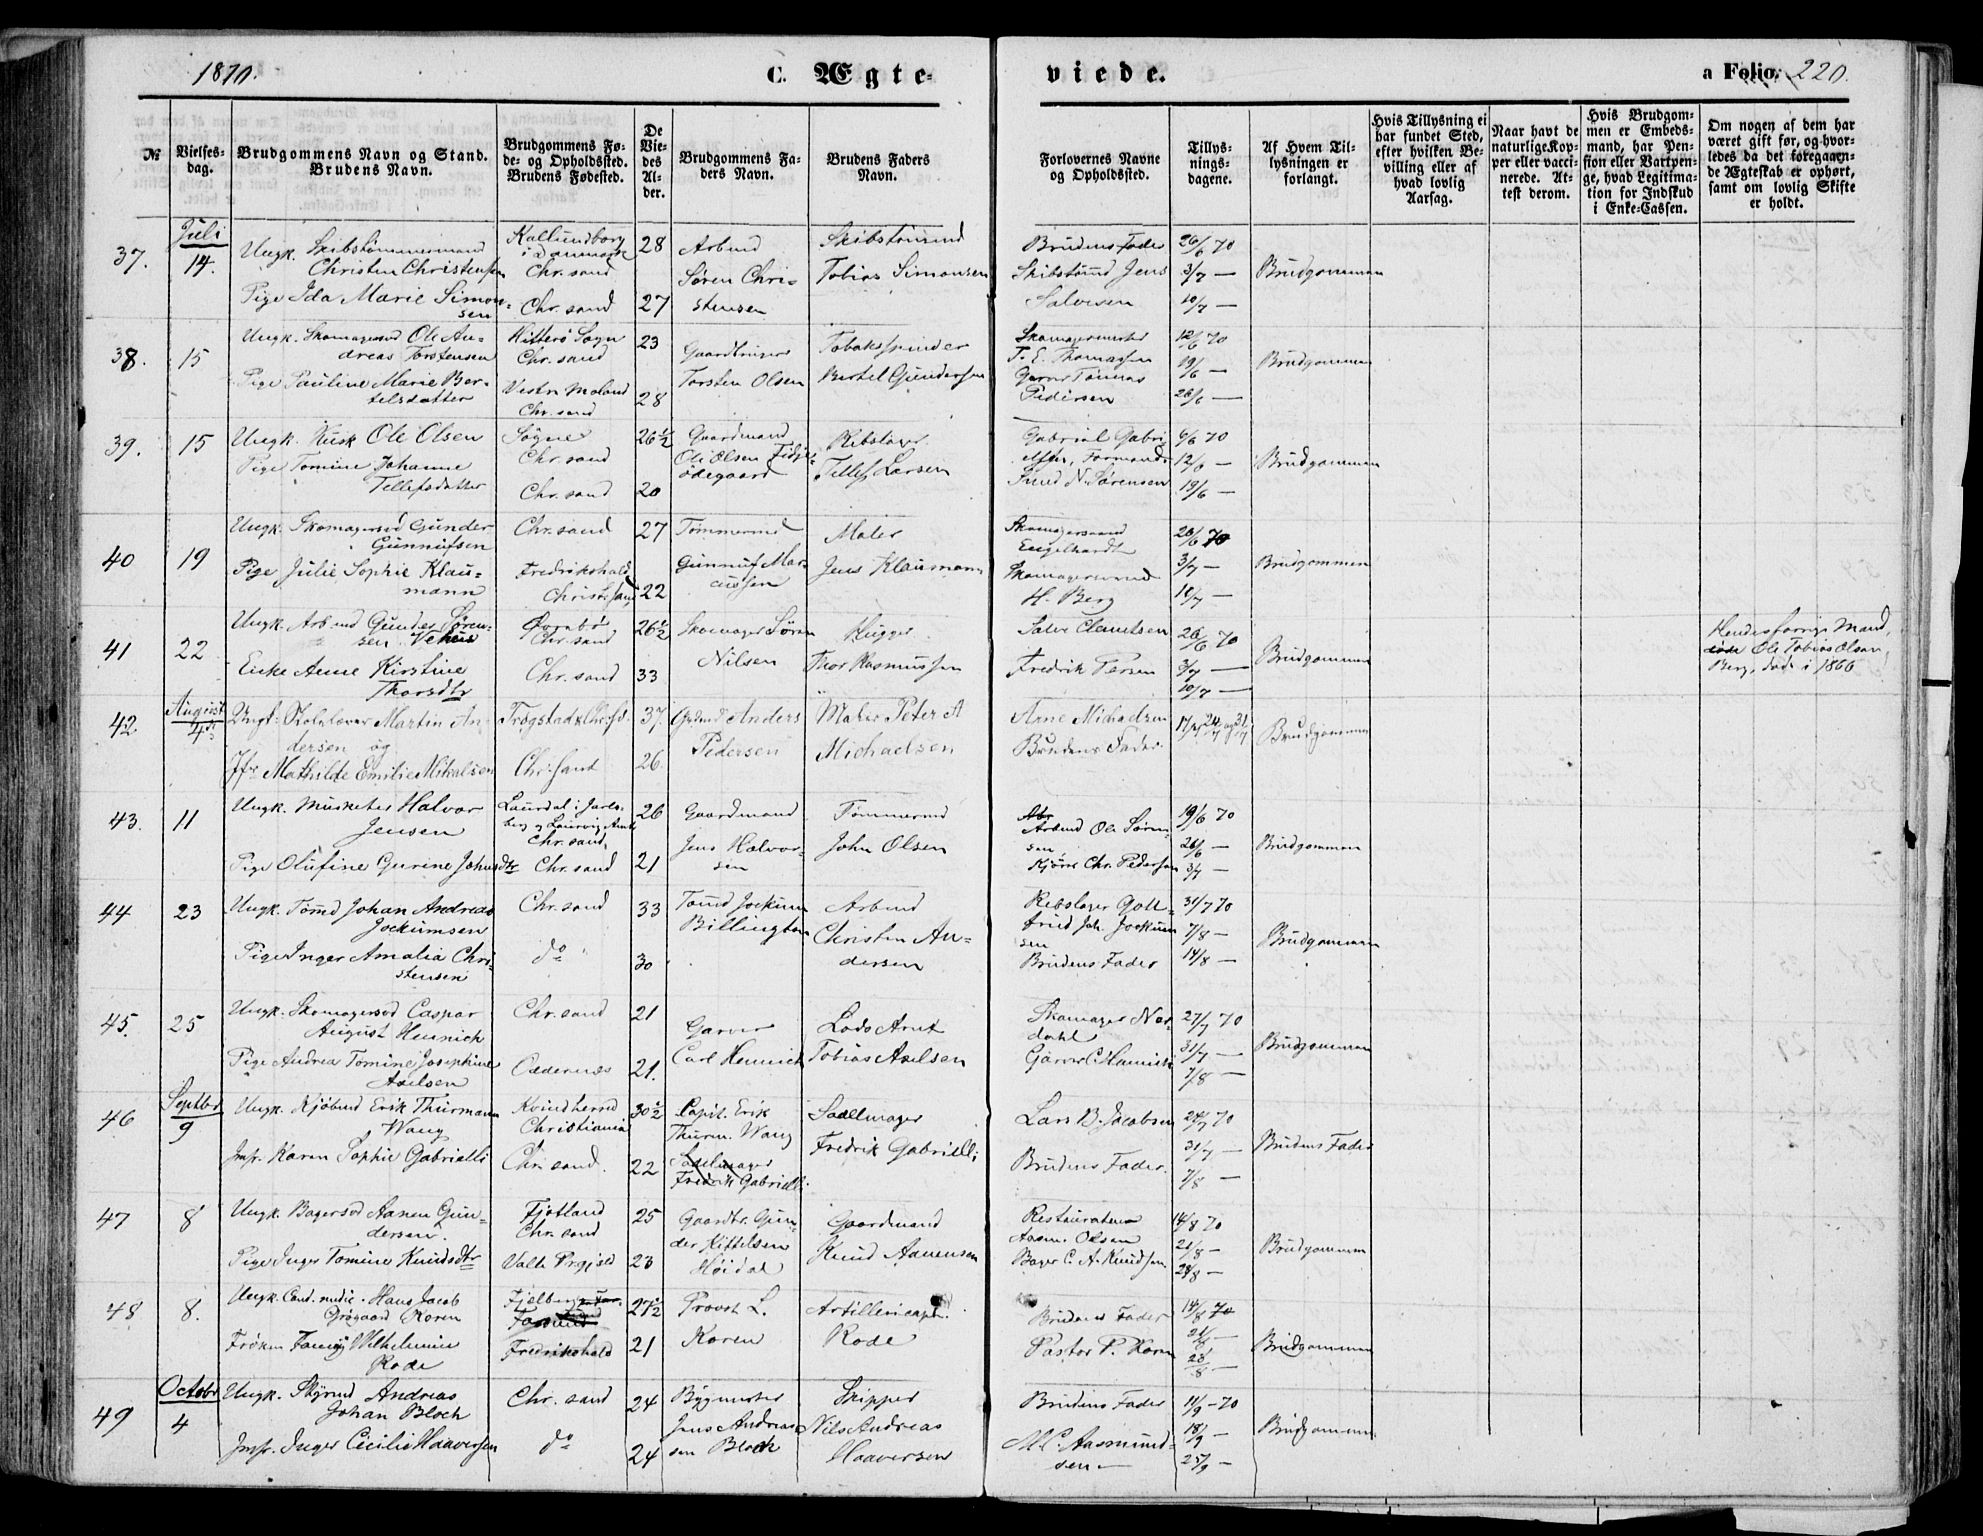 1870.
C. Ægte-
viede.
a Folio. 220.
№
Vielses-
dag.
Brudgommens Navn og Stand.
Brudens Navn.
Brudgommens Fø-
de- og Opholdssted.
Brudens Fødested.
De
Vie-
des
Al-
der.
Brudgommens Fa-
ders Navn.
Brudens Faders
Navn.
Forlovernes Navne
og Opholdssted.
Tillys-
nings-
dagene.
Af Hvem Til-
lysningen er
forlangt.
Hvis Tillysning ei
har fundet Sted,
efter hvilken Be-
villing eller af
hvad lovlig
Aarsag.
Naar havt de
naturlige Kop-
per eller vacci-
nerede. At-
test derom.
Hvis Brudgom-
men er Embeds-
mand, har Pen-
sion eller Vartpen-
ge, hvad Legitima-
tion for Indskud
i Enke-Cassen.
Om nogen af dem har
været gift før, og hvor-
ledes da det foregaaen-
de Ægteskab er ophørt,
samt om lovlig Skifte
er holdt.
37.
Juli
14.
Ungk. Skibstømmermand
Christen Christensen
Pige Ida Marie Simon-
sen
Kallundborg
i Danmark
Chr. sand
Chr. sand
28
27
Arbmd
Søren Chri-
stensen
Skibstømmd
Tobias Simonsen
Brudens Fader
Skibstømmd Jens
Salvesen
26/6 70
3/7 —
10/7 —
Brudgommen
38.
15
Ungk. Skomagersvd Ole An-
dreas Torstensen
Pige Pauline Marie Ber-
telsdatter
Hitterø Sogn
Chr. sand
Vestre Moland
Chr. sand
23
28
Gaardbruger
Torsten Olsen
Tobakspinder
Bertel Gundersen
Skomagermester
T. E. Thomassen
Garver Tønnes
Pedersen
12/6 70
19/6 —
26/6 —
Brudgommen
39.
15
Ungk. Kusk Ole Olsen
Pige Tomine Johanne
Tellefsdatter
Søgne
Chr. sand
Chr. sand
26½
20
Gaardmand
Ole Olsen
ødegaard
Rebslager
Tellef Larsen
Gabriel Gabri-
elsen, Formand
N. Sørensen
6/6 70
12/6 —
19/6 —
Brudgommen
40
19
Ungk. Skomagersvd Gunder
Gunnufsen
Pige Julie Sophie Klau-
mann
Chr. sand
Fredrikshald
Christ. sand
27
22
Tømmermd
Gunnuf Mar-
cussen
Maler
Jens Klaumann
Skomagersvend
Engelhardt
Skomagersvend
H. Berg
26/6 70
3/7 —
10/7 —
Brudgommen
41
22
Ungk. Arbmd Gunder Søren-
sen Vehus
Enke Anne Kirstine
Thorsdtr
Øvrebø
Chr. sand
Chr. sand
26½
33
Skomager Søren
Nilsen
Hugger
Thor Rasmussen
Salve Clemetsen
Fredrik Tersen
26/6 70
3/7 —
10/7 —
Brudgommen
Hendes forrige Mand,
Ole Tobias Olsen
Berg, døde i 1866
42
August
4de
Ungk. Martin An-
dersen og
Jfr Mathilde Emilie Mikalsen
Trøgstad, Chr.sd.
Chr. sand
37.
26.
Grdmd Anders
Pedersen
Maler Peter A
Michaelsen
Arne Michaelsen
Brudens Fader.
17/7, 24/7 og 31/7
Brudgommen
43.
11
Ungk. Musketer Halvor
Jensen
Pige Olufine Gurine Johnsdtr
Laurdal i Jarls-
berg og Laurvig Amt
Chr. sand,
Chr. sand
26
21
Gaardmand
Jens Halvor-
sen
Tømmermd
John Olsen
Arbmd Ole Søren-
sen
Chr. Pedersen
19/6 70
26/6 —
3/7 —
Brudgommen
44
23
Ungk. Tømd Johan Andreas
Jockumsen
Pige Inger Amalia Chri-
stensen
Chr. sand
do
33
30
Tømd Jockum
Billington
Arbmd
Christen An-
dersen
Rebslager Gott-
frid Joh. Jockum-
sen
Brudens Fader
31/7 70
7/8 —
14/8 —
Brudgommen
45.
25
Ungk. Skomagersvd Caspar
August Hennich
Pige Andrea Tomine Josephine
Axelsen
Chr. sand
Oddernes
21
21.
Garver
Carl Hennich
Lods Arnt
Tobias Axelsen
Skomager Nor-
dahl
Garver C. Hennich
27/7 70
31/7 —
7/8 —
Brudgommen
46
Septbr
9
Ungk. Kjøbmd Erik Thurmann
Wang
Jmfr. Karen Sophie Gabrielli
Kvindherred
Christiania
Chr. sand.
30½
22
Capit. Erik
Thurm. Wang
Sadelmager
Fredrik Gabrielli
Sadelmager
Fredrik Gabrielli
Lars B. Jacobsen
Brudens Fader.
24/7 70
31/7 —
7/8 —
Brudens Fader
47
8
Ungk. Bagersvd Aanen Gun-
dersen.
Pige Inger Tomine Knudsdtr
Fjotland
Chr. sand
Valle Prgjeld
25
23
Gaardbr. Gun-
der Kittelsen
Høidal
Gaardmand
Knud Aanensen
Restaurateur
Aasm. Olsen
Bager C. A. Knudsen
14/8 70
21/8 —
28/8 —
Brudgommen
48
8.
Ungk. Cand. medic. Hans Jacob
Grøgaard Koren
Frøken Fanny Wilhelmine
Rode
Fjelberg
Fredrikshald
27½
21
Provst L.
Koren
Artillericapt.
Rode
Brudens Fader
Pastor P. Koren
14/8 70
21/8 —
28/8 —
Brudgommen
49
Octobr
4
Ungk. Andreas
Johan Bloch
Jmfr. Inger Cecilie Haaversen
Chr. sand
do
24
24
Bygmester
Jens Andrea-
sen Bloch
Skipper
Nils Andreas
Haaversen
Brudens Fader
M. C. Aasmund-
sen —
11/9 - 70
18/9 —
25/9 —
Brudgommen